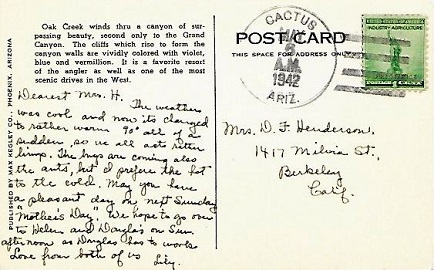 Oak Creek winds thru a canyon of sur-
passing beauty, second only to the Grand
Canyon. The cliffs which rise to form the
canyon walls are vividly colored with violet,
blue and vermillion. It is a favorite resort
of the angler as well as one of the most
scenic drives in the West.
PUBLISHED BY MAX KEGLEY CO., PHOENIX, ARIZONA
Dearest Mrs. H.
The weather
was cool and now its changed
to rather warm 90° all of a
sudden, so we all acts rather
limp. The bugs are coming also
the ants, but I prefere the hot
to the cold. May you have
a pleasant day on next Sunday
"Mother's Day". We hope to go over
to Helen and Dougla's on Sun.
afternoon as Douglas has to work
Love from both of us
Lily.
POST CARD
THIS SPACE FOR ADDRESS ONLY
CACTUS
A.M.
1942
ARIZ.
INDUSTRY AGRICULTURE
Mrs. D. F. Henderson,
1417 Milvia St.,
Berkeley
Calif.